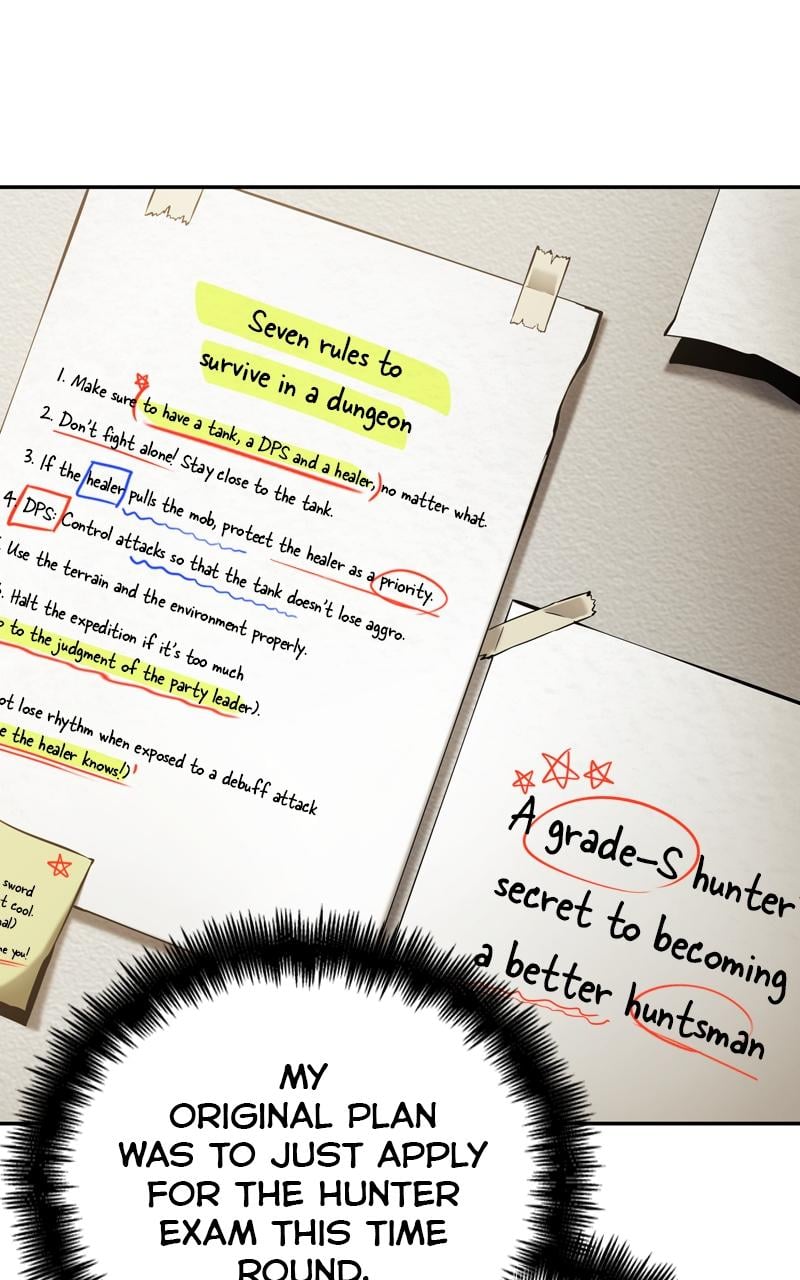 Seven rules to
survive in a dungeon
1. Make sure to have a tank, a DPS and a healer, no matter what.
2. Don't fight alone! Stay close to the tank.
3. If the healer pulls the mob, protect the healer as a priority.
4. DPS: Control attacks so that the tank doesn't lose aggro.
Use the terrain and the environment properly.
. Halt the expedition if it's too much
to the judgment of the party leader).
lose rhythm when exposed to a debuff attack
the healer knows!)
sword
cool.
me you!
A grade-S hunter
secret to becoming
a better huntsman
MY
ORIGINAL PLAN
WAS TO JUST APPLY
FOR THE HUNTER
EXAM THIS TIME
ROUND.